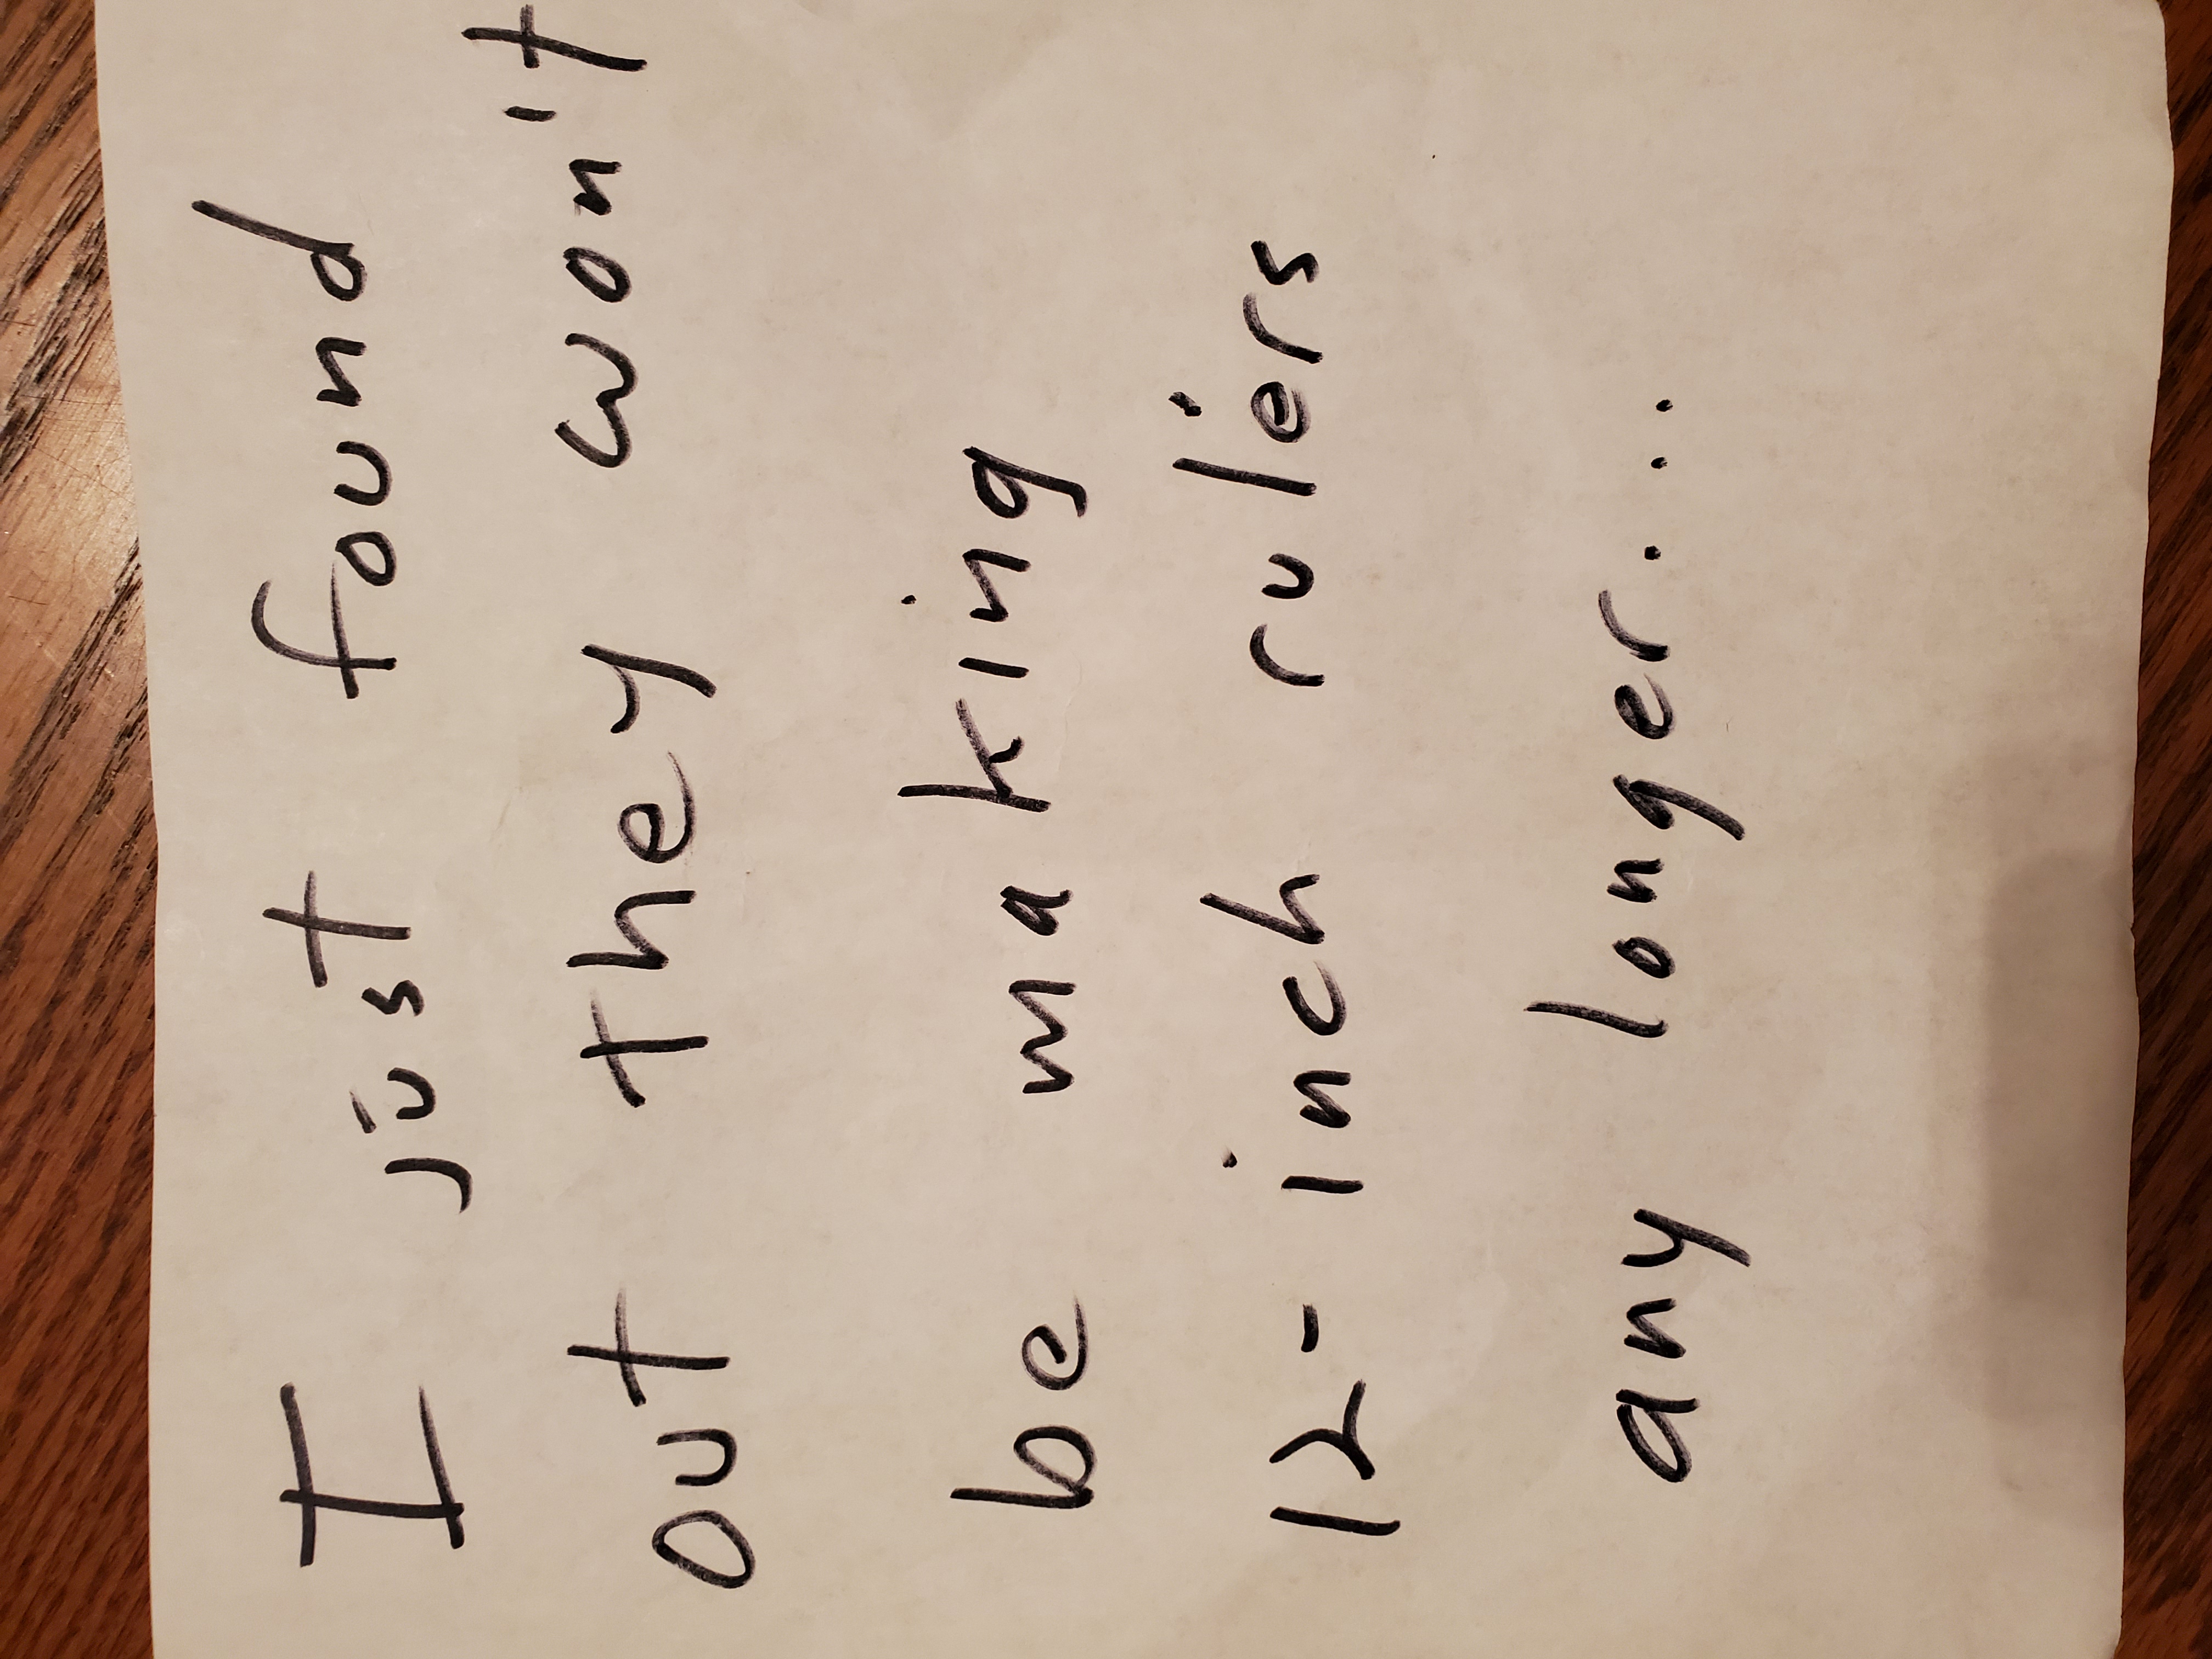 I just found
out they won't
be making
12-inch rulers
any longer...